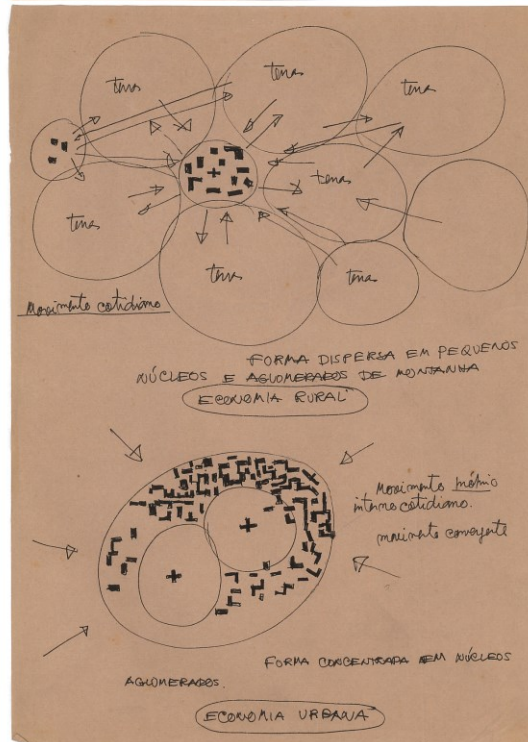 terras
terras
terras
terras
terras
terras
terras
Movimento cotidiano
FORMA DISPERSA EM PEQUENOS
NÚCLEOS E AGLOMERADOS DE MONTANHA
ECONOMIA RURAL
Movimento
interno cotidiano.
movimento convergente
FORMA CONCENTRADA EM NÚCLEOS
AGLOMERADOS.
ECONOMIA URBANA